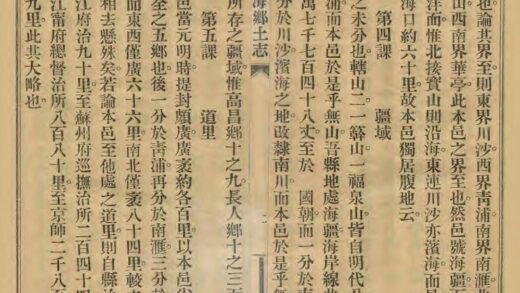 也論其界至則東界川沙西界青浦南界南滙北
山西南界華亭此本邑之界至也然邑號海疆
洋面惟北接寶山則沿海東連川沙亦濱海而
海口約六十里故本邑獨居腹地云
第四課 疆域
之未分也轄山二一簳山一福泉山皆自明代分
浦而本邑於是乎無山吾縣地處海疆海岸線
萬七千七百四十八丈至於 國朝而一分於南
分於川沙濱海之地改隸南川而本邑於是乎無
海鄉土志
所存之疆域惟高昌鄉十之九長人鄉十之三
第五課 道里
邑當元明時提封頗廣廣袤約各百里以本邑
至之五鄉也後一分於青浦再分於南滙三分
而東西僅廣六十六里南北僅袤八十四里較
相去懸殊矣若論本邑至他處之道里則自縣
江府治九十里至蘇州府巡撫治所二百四十
江甯府總督治所八百八十里至京師二千八
九里此其大略也